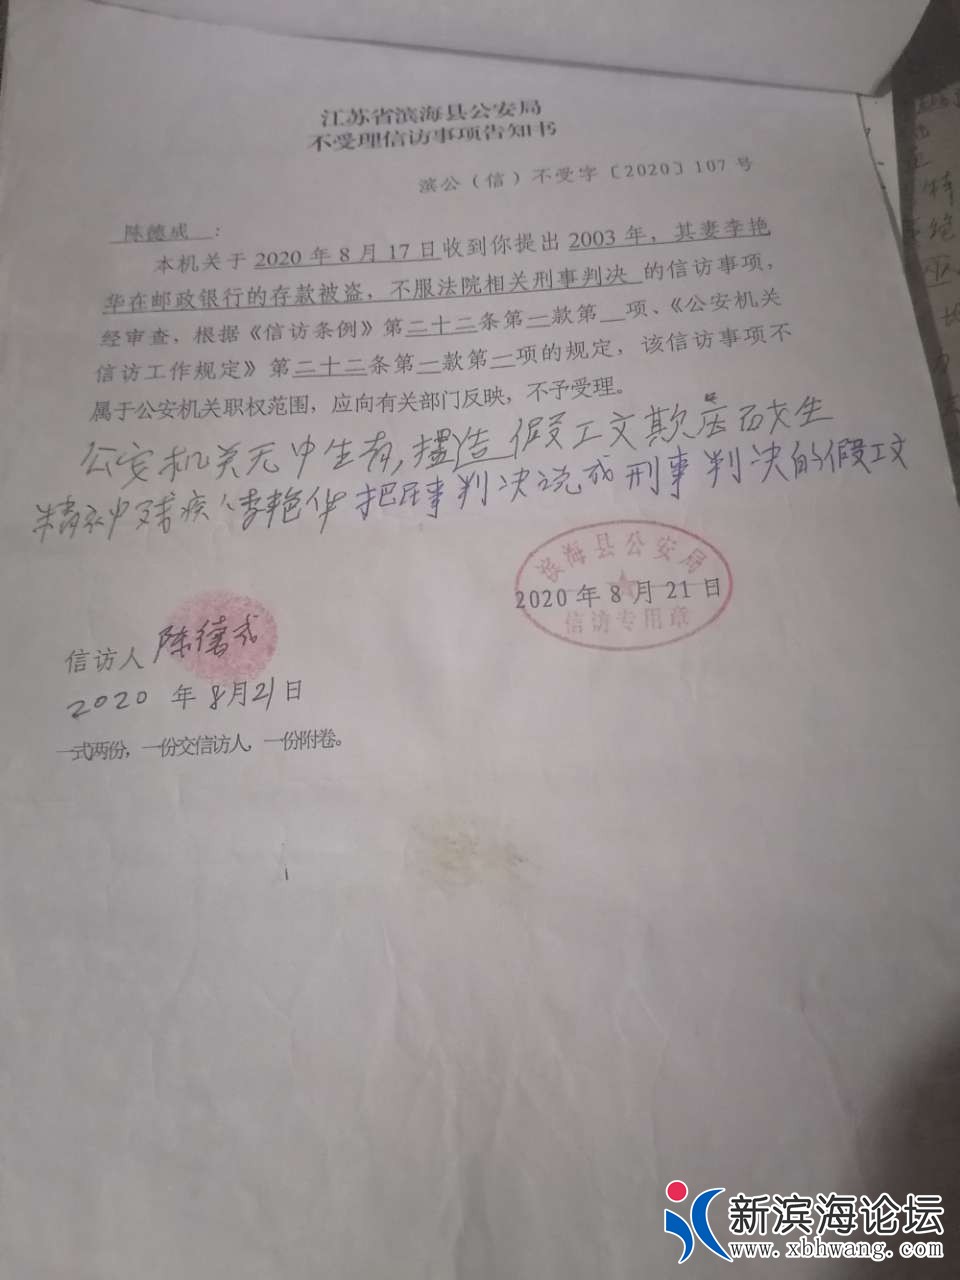 江苏省滨海县公安局
不受理信访事项告知书
滨公（信）不受字〔2020〕107 号
陈德成 ：
本机关于 2020 年 8 月 17 日收到你提出 2003 年，其妻李艳
华在邮政银行的存款被盗，不服法院相关刑事判决 的信访事项，
经审查，根据《信访条例》第二十二条第一款第 项、《公安机关
信访工作规定》第二十二条第一款第一项的规定，该信访事项不
属于公安机关职权范围，应向有关部门反映，不予受理。
公安机关无中生有，捏造假工文欺压百女生
精神残疾人李艳华把民事判决说成刑事判决的假工文
滨海县公安局
2020 年 8 月 21 日
信访专用章
信访人 陈德成
2020 年 8月21日
一式两份，一份交信访人，一份附卷。
新滨海论坛
www.xbhwang.com